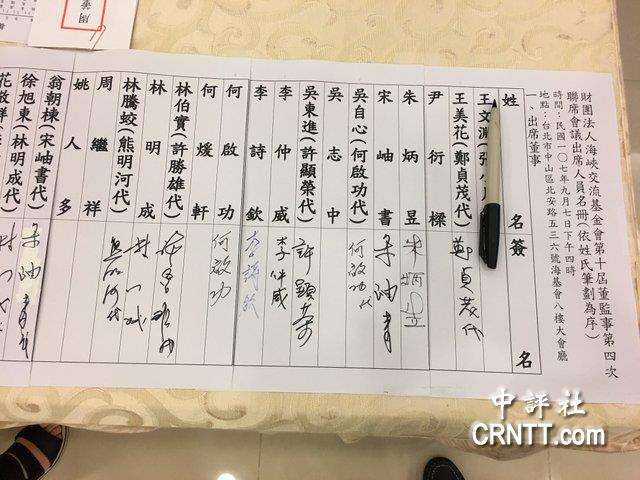 財團法人海峽交流基金會第十屆董監事第四次
聯席會議出席人員名冊(依姓氏筆劃為序)
時間:民國一〇七年九月七日下午四時
地點:台北市中山區北安路五三六號海基會八樓大會廳
一、出席董事
姓名 簽名
王文淵(張
王美花(鄭貞茂代) 鄭貞茂代
尹衍樑
朱炳昱 朱炳昱
宋岫書 宋岫書
吳自心(何啟功代) 何啟功代
吳志中
吳東進(許顯榮代) 許顯榮
李仲威 李仲威
李詩欽 李詩欽
何啟功 何啟功
何煖軒
林伯實(許勝雄代)
林明成
林騰蛟(熊明河代) 熊明河代
周繼祥
姚人多
翁朝棟(宋岫書代) 宋岫書
徐旭東(林明成代)
花敬群(
中評社
CRNTT.com